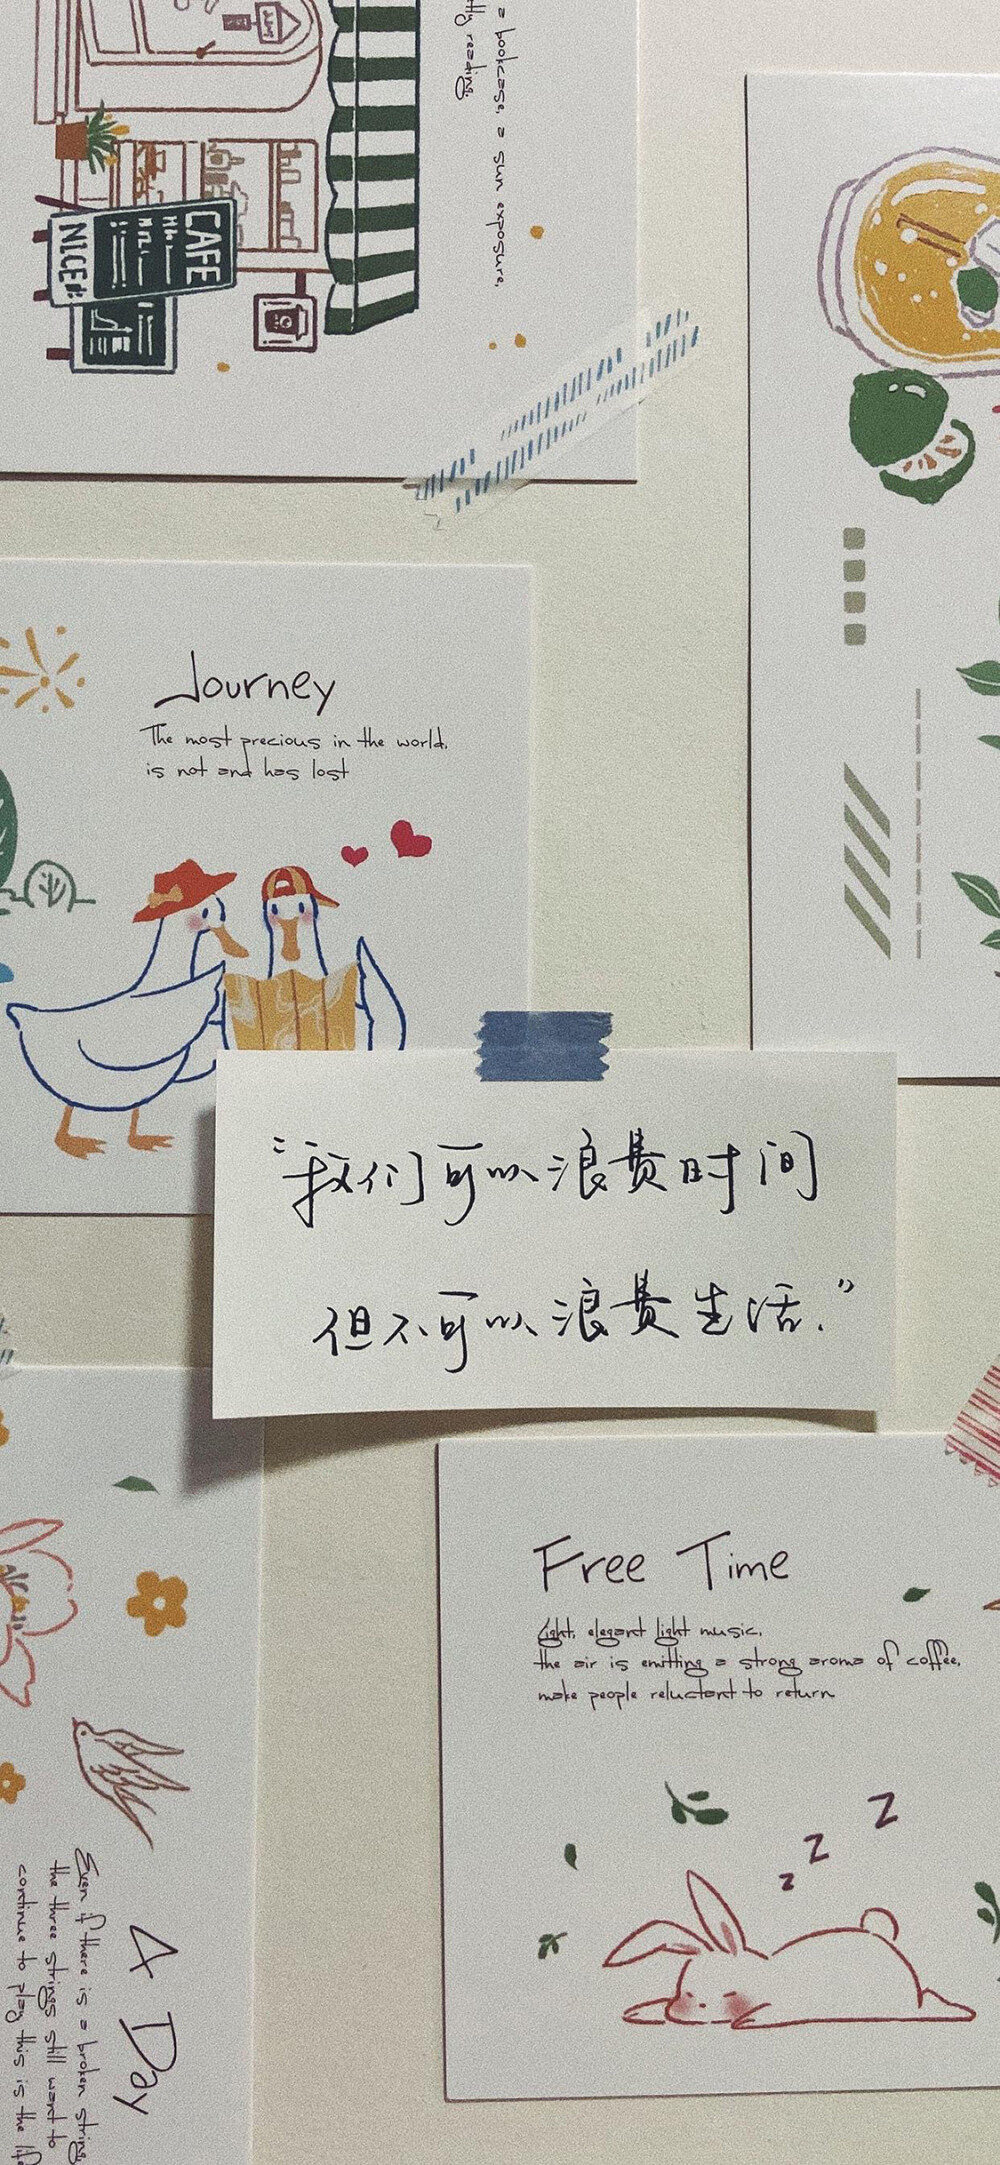 a bookcase, a sun exposure,
reading.
CAFE
NICE
Journey
The most precious in the world,
is not and has lost
“我们可以浪费时间
但不可以浪费生活.”
Free Time
Light, elegant light music,
the air is emitting a strong aroma of coffee,
make people reluctant to return
z
z
z
A Day
Even if there is a broken string,
the three strings still want to
continue to play this is the life